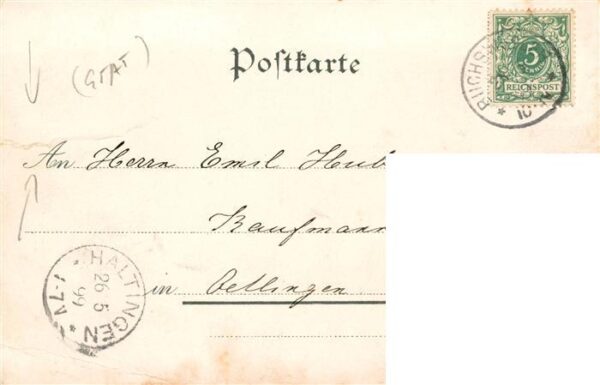 (GTAT)
Postkarte
5
PFENNIG
REICHSPOST
An Herrn Emil Hub
Kaufmann
in Oetlingen
HALTINGEN
26 5
99